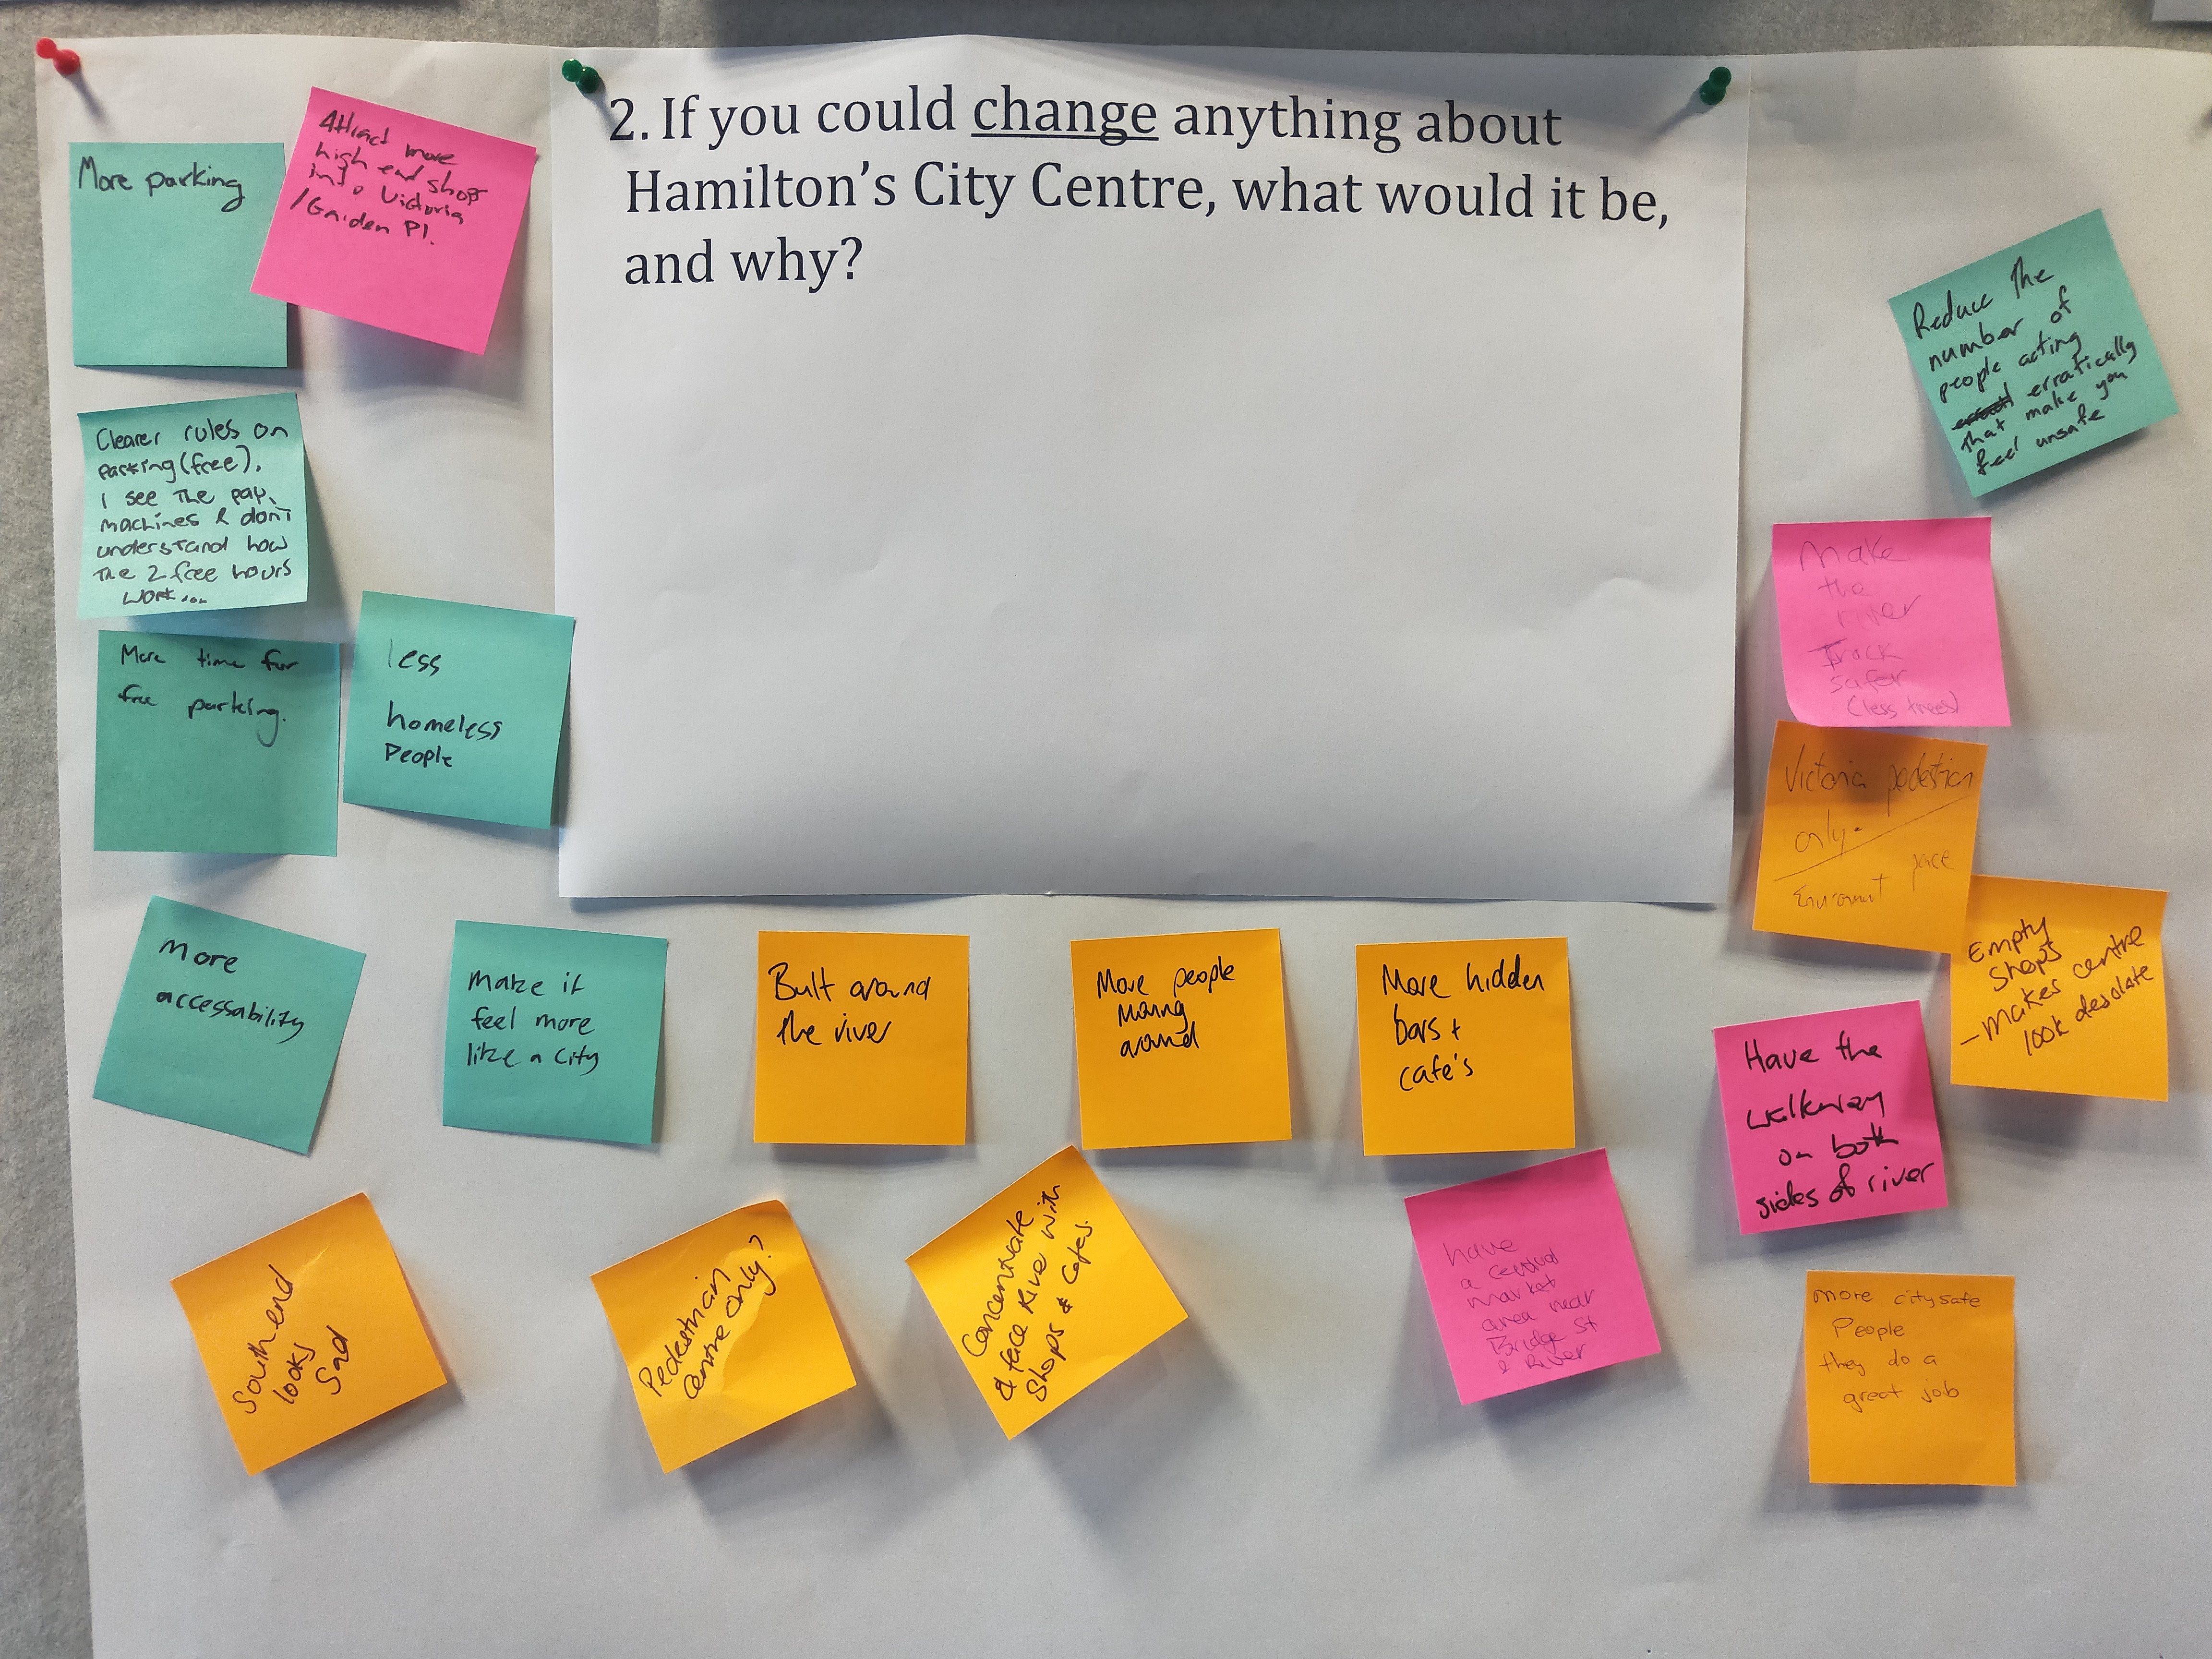 2. If you could change anything about
Hamilton's City Centre, what would it be,
and why?
More parking
Attract more
high end shops
into Victoria
/Garden Pl.
Clearer rules on
parking (free),
I see the pay
machines & don't
understand how
the 2 free hours
work...
More time for
free parking.
less
homeless
People
More
accessability
make it
feel more
like a city
Built around
the river
More people
moving
around
More hidden
bars +
cafe's
South end
looks
Sad
Pedestricin
centre only?
Concentrate
& face River with
Shops & Cafes.
have
a central
market
area near
Bridge St
& River
Reduce the
number of
people acting
erratically
that make you
feel unsafe
Make
the
river
Track
safer
(less trees)
Victoria pedestian
only.
Empty
Shops
- makes centre
look desolate
Have the
walkway
on both
sides of river
more citysafe
People
they do a
great job